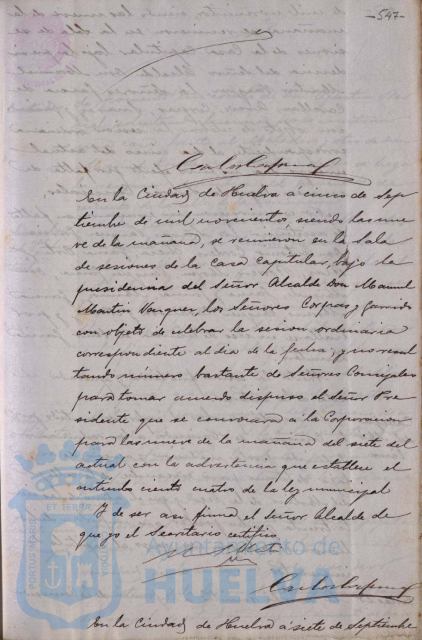 -547-
En la Ciudad de Huelva á cinco de Sep
tiembre de mil novecientos, siendo las nue
ve de la mañana, se reunieron en la Sala
de sesiones de la Casa Capitular, bajo la
presidencia del Señor Alcalde Don Manuel
Martin Vazquez, los Señores Corpas y Garrido
con objeto de celebrar la sesion ordinaria
correspondiente al dia de la fecha, y no resul
tando número bastante de Señores Concejales
para tomar acuerdo dispuso el Señor Pre
sidente que se convocara á la Corporacion
para las nueve de la mañana del siete del
actual con la advertencia que establece el
articulo ciento cuatro de la ley municipal
Y de ser asi firma el Señor Alcalde de
que yo el Secretario certifico
Ayuntamiento de
HUELVA
PORTUS MARIS
ET TERRÆ
CUSTODIA
En la Ciudad de Huelva á siete de Septiembre